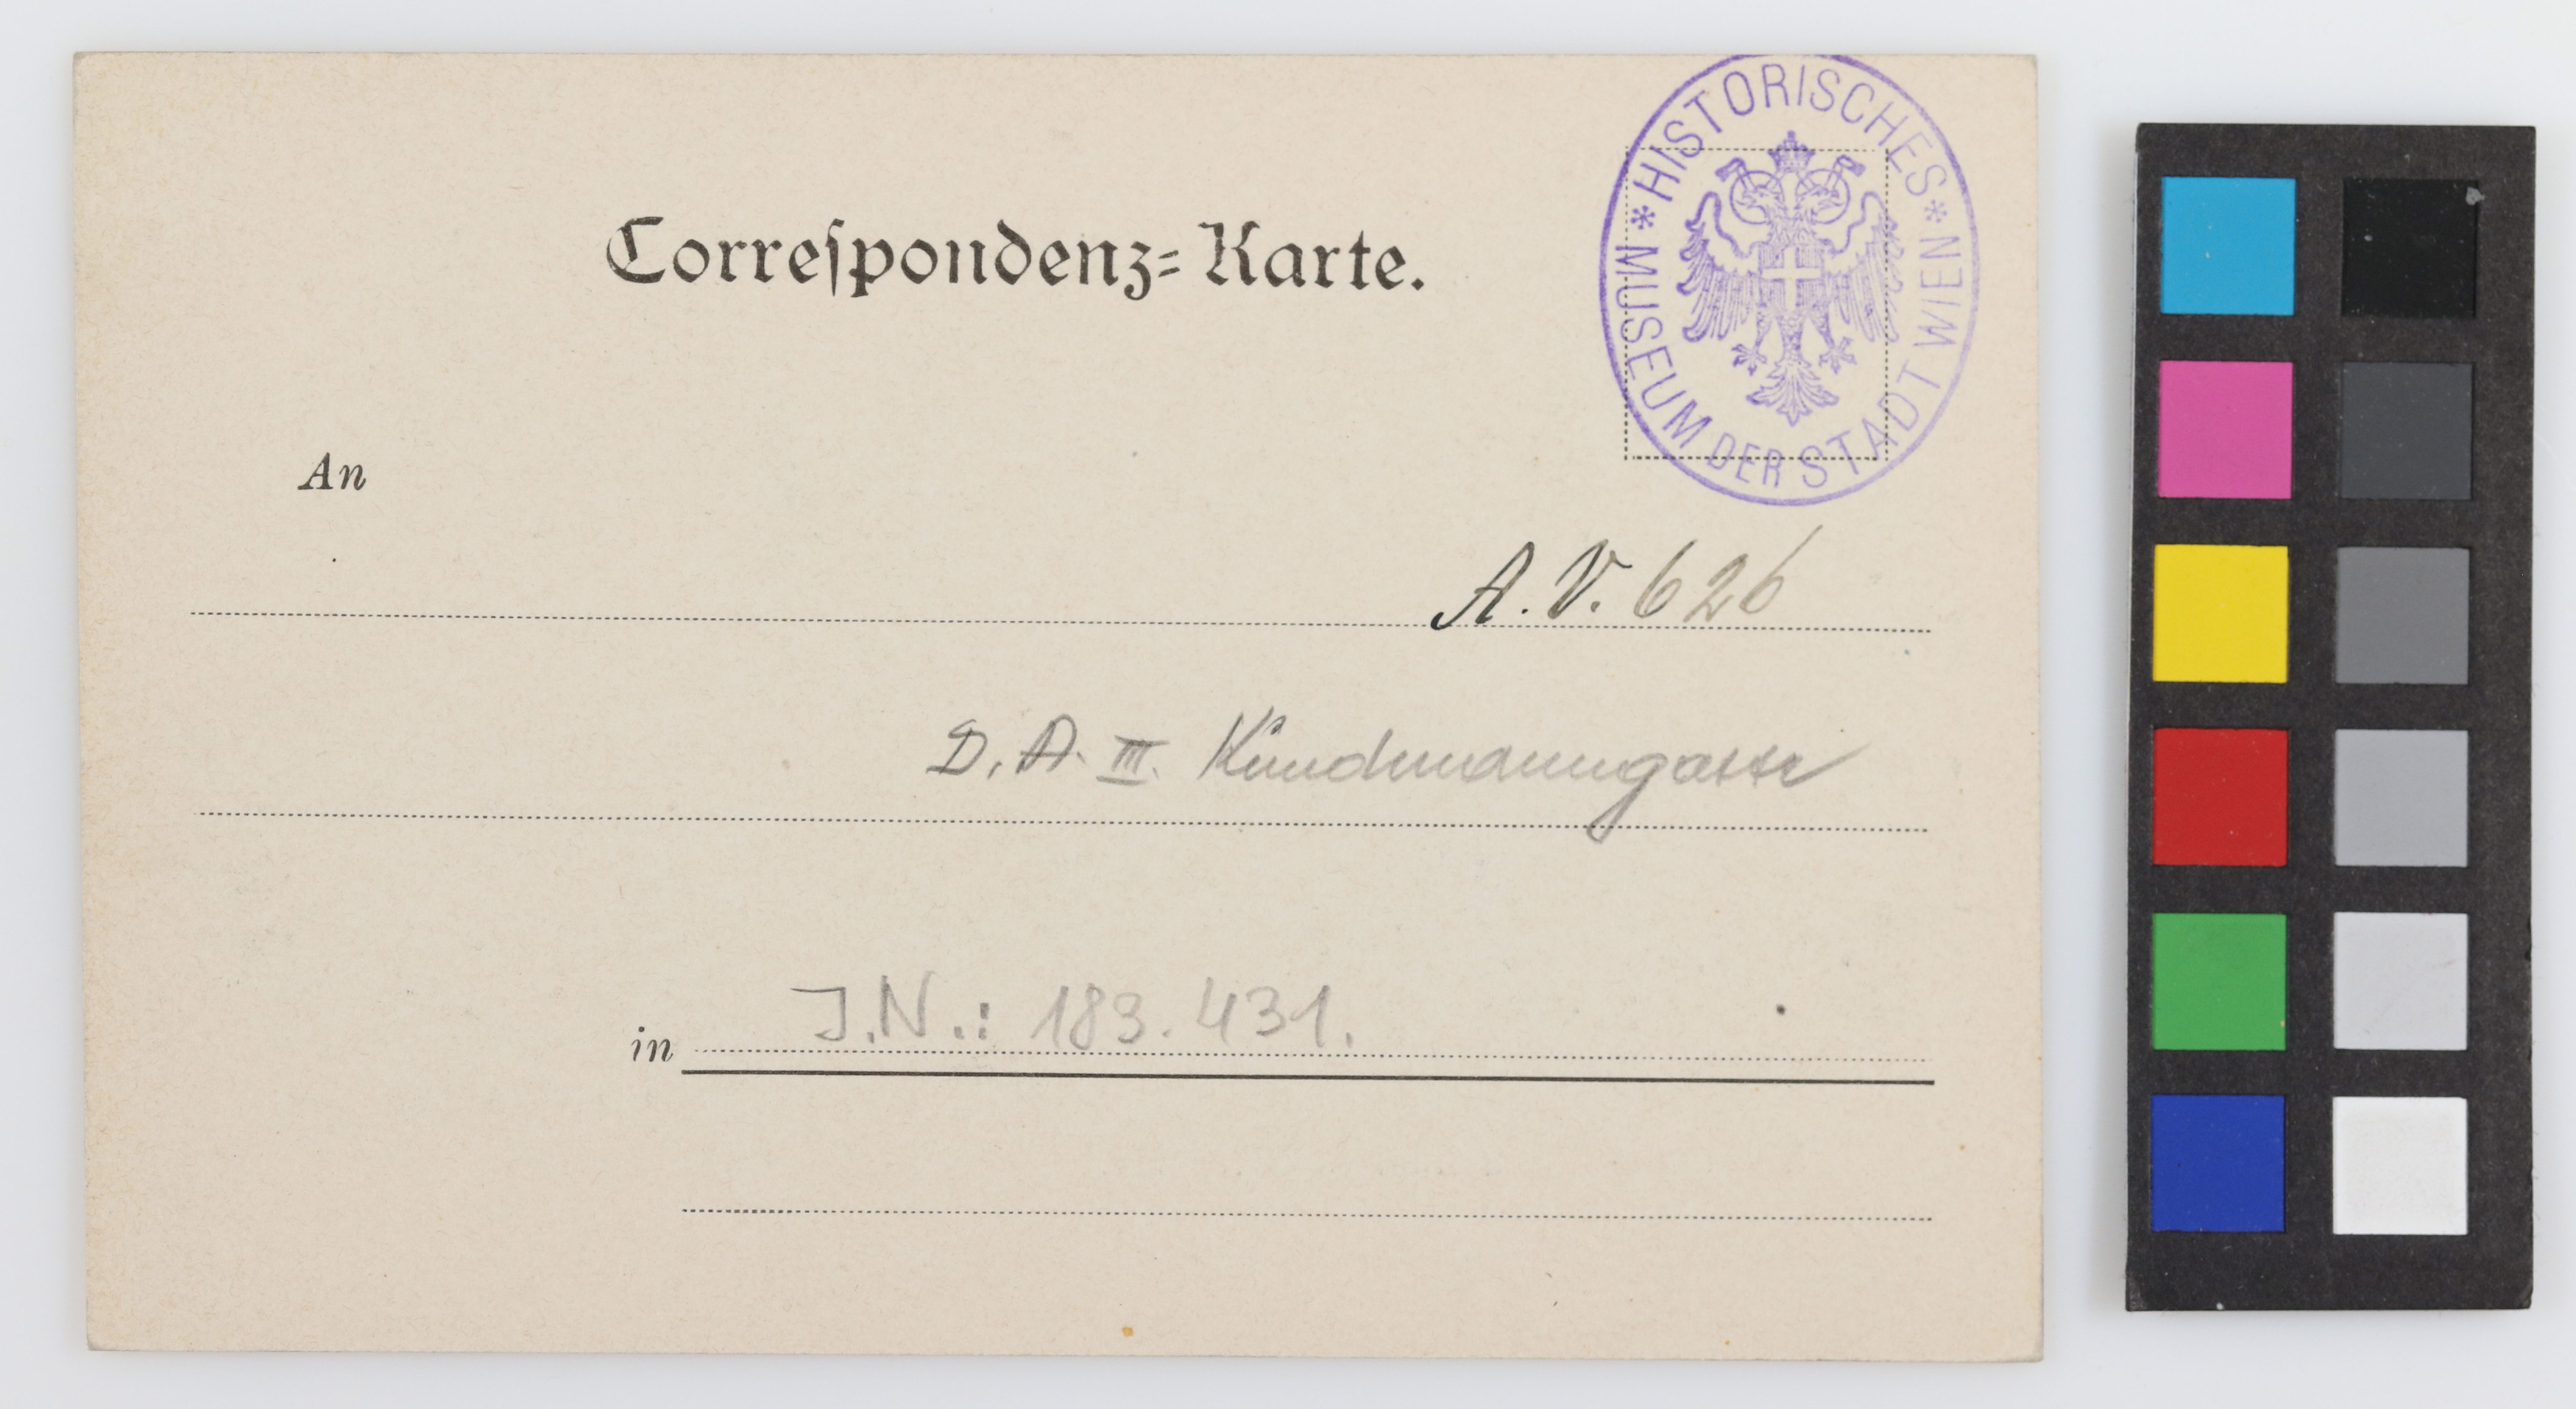 Correſpondenz=Karte.
* HISTORISCHES *
MUSEUM DER STADT WIEN
An
A. V. 626
D. A. III. Kundmanngasse
in J.N.: 183.431.